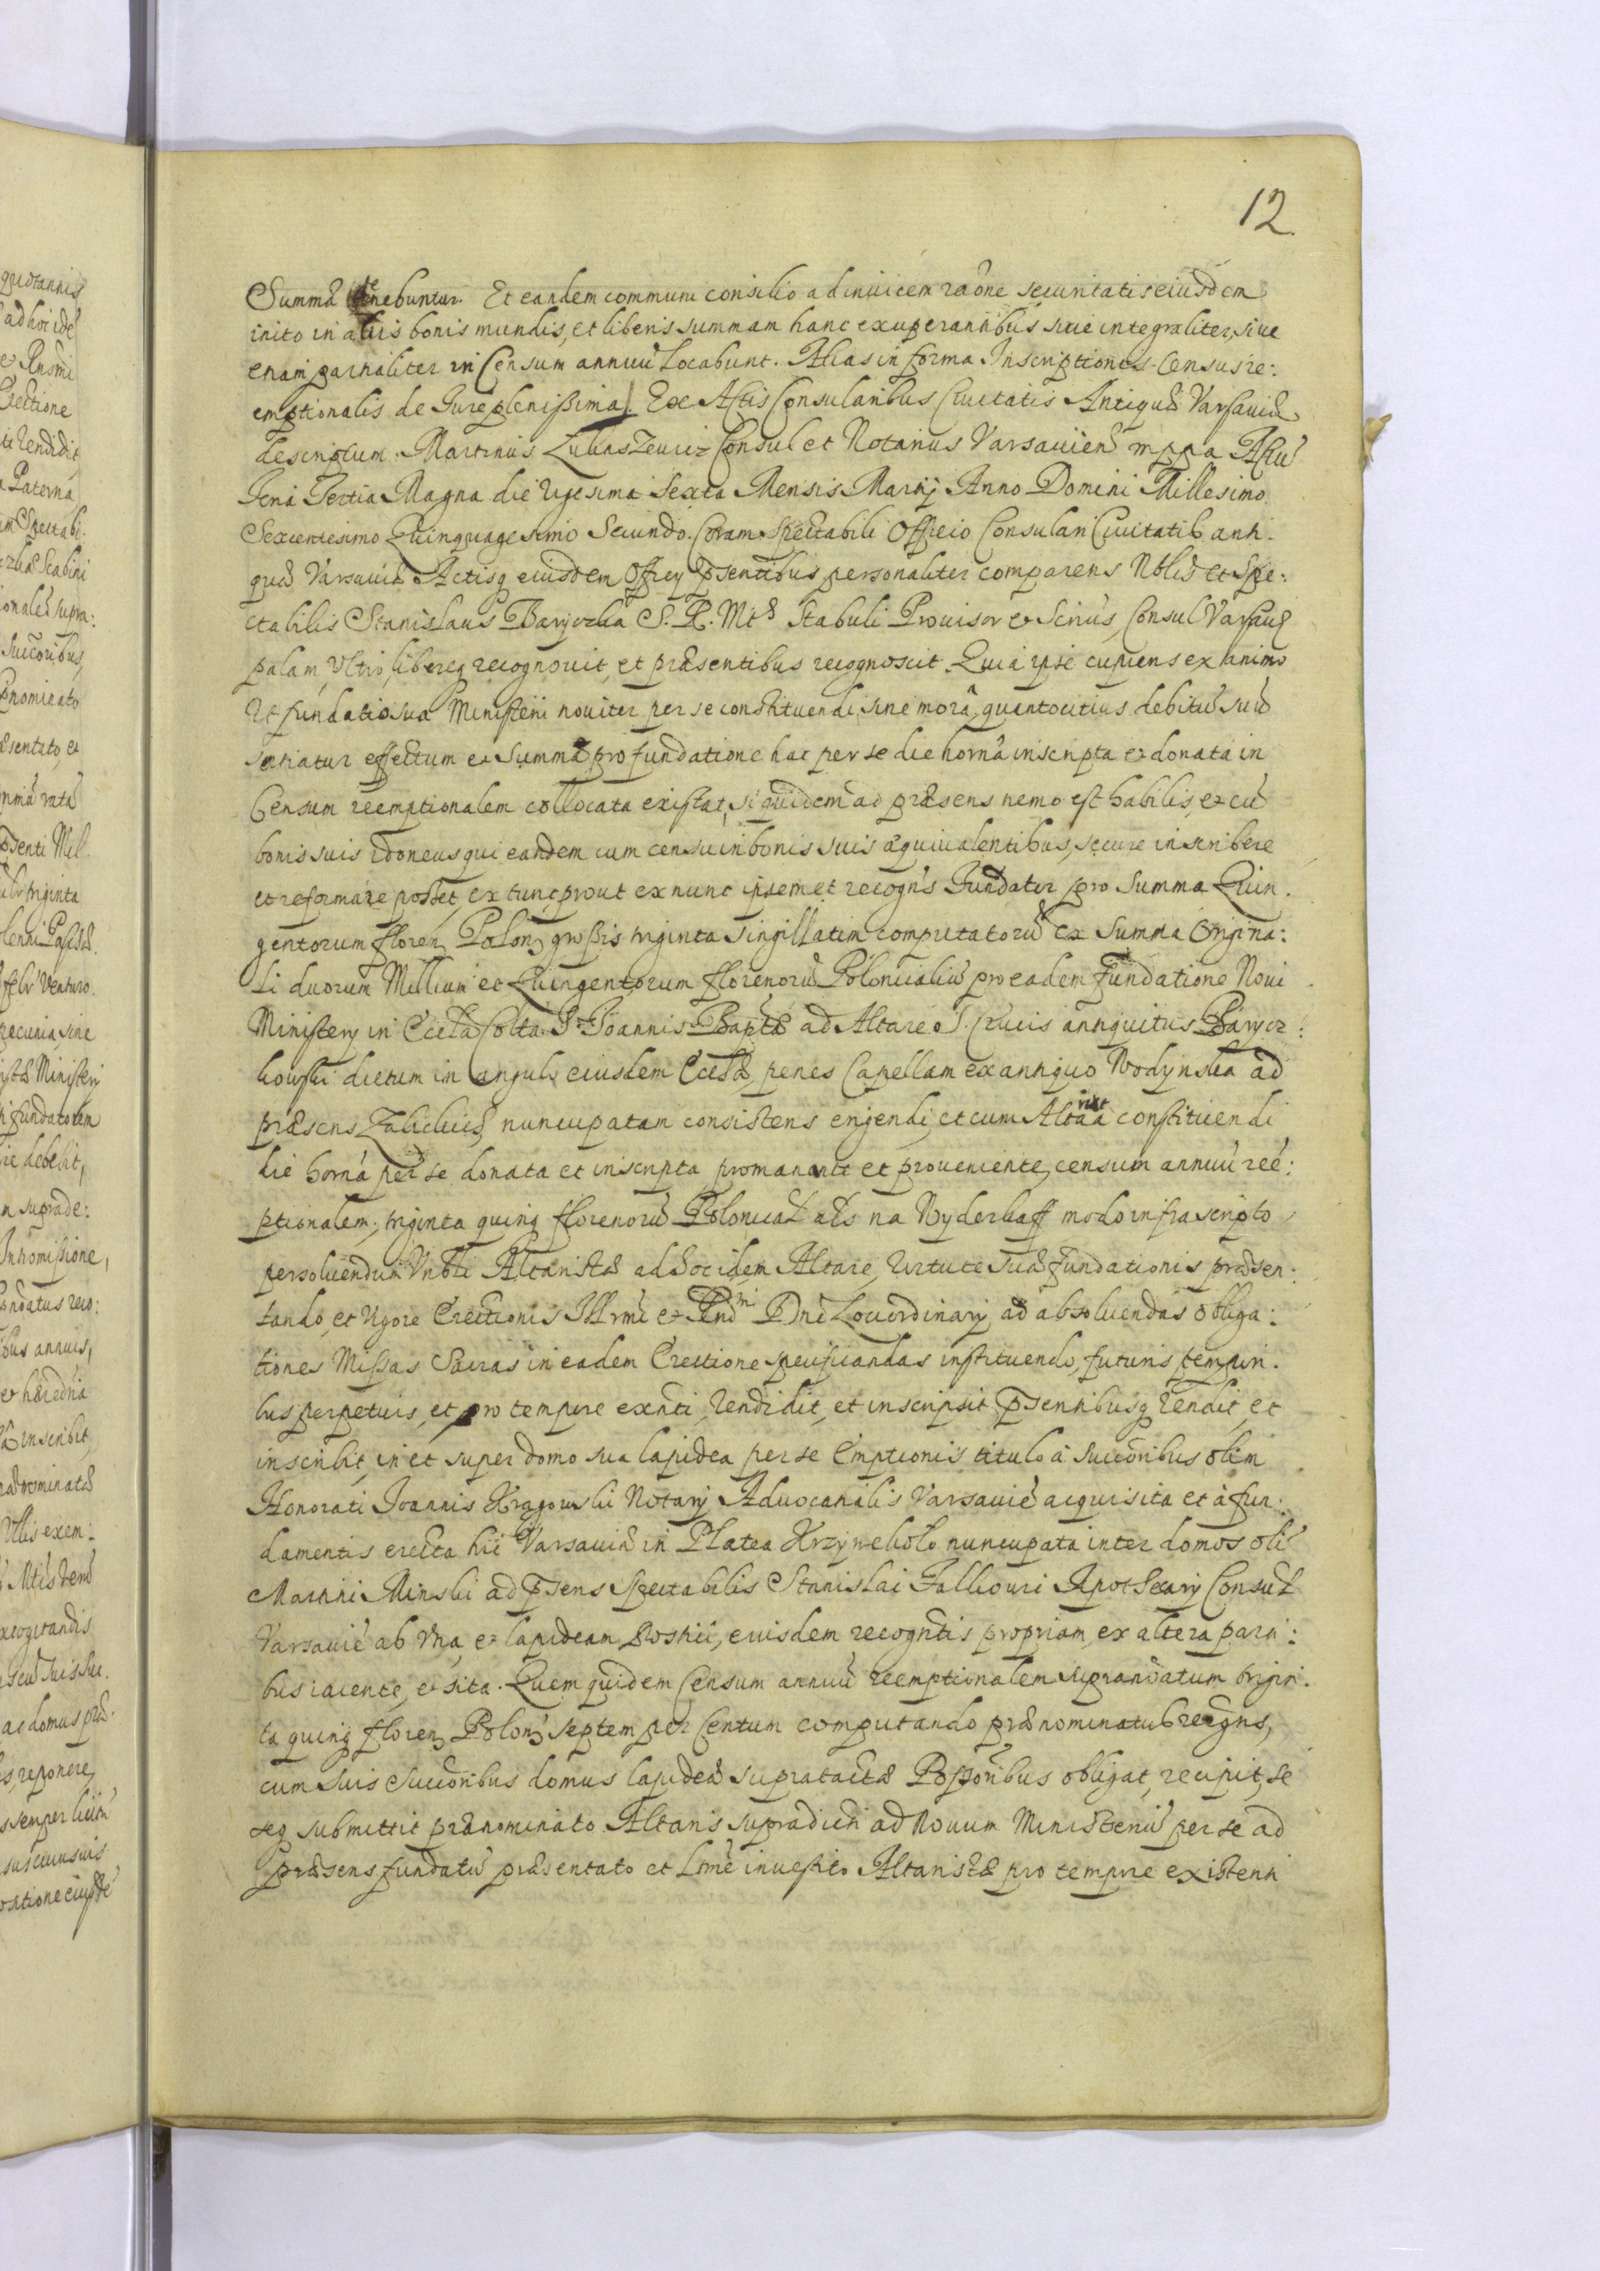 12
Summa tenebuntur. Et eandem communi consilio adinuicem raõne securitatis eiusdem
inito in aliis bonis mundis, et liberis summam hanc exuperantibus siue integraliter, siue
etiam partialiter in Censum annuũ locabunt. Alias in forma Inscriptionis Census re:
emptionalis de Iure plenissima. Ex Actis Consularibus Ciuitatis Antiquæ Varsauiæ
descriptum. Martinus Lukaszewicz Consul et Notarius Varsauien mppa Actũ
Feria Tertia Magna die Vigesima Sexta Mensis Martij Anno Domini Millesimo
Sexcentesimo Quinquagesimo Secundo. Coram Spectabili Officio Consulari Ciuitatis anti-
quæ Varsauiæ Actisq eiusdem Officij p̃sentibus personaliter comparens Nblis et Spe:
ctabilis Stanislaus Baryczka S. R. Mtis Stabuli Prouisor et Scriũs, Consul Varsauiẽ
palam, Vltro, libereq recognouit, et præsentibus recognoscit. Quia ipse cupiens ex animo
Ut fundatio sua Ministerii nouiter per se constituendi sine mora, quantocitius debitũ suũ
sortiatur effectum et Summa pro fundatione hac per se die horna inscripta et donata in
Censum reemptionalem collocata existat, siquidem ad præsens nemo est habilis, et cũ
bonis suis idoneus qui eandem cum censu in bonis suis æquiualentibus, secure inscribere
et reformare posset, ex tunc prout ex nunc ipsemet recogñs Fundator pro Summa Quin-
gentorum floren Polon grossis triginta singillatim computatorũ ex Summa Origina:
li duorum Millium et Quingentorum florenorũ Polonicaliũ pro eadem fundatione Noui
Ministerij in Eccla Colta S. Ioannis Baptæ ad Altare S. Crucis antiquitus Barycz:
kowski dictum in angulo eiusdem Ecclæ, penes Capellam ex antiquo Wodynska ad
præsens nuncupatam consistens erigendi, et cum Altari constituendi
die horna per se donata et inscripta promanante et proueniente, censum annuũ reẽ:
ptionalem, triginta quinq florenorũ Polonical als na Wyderkaff modo infrascripto
persoluendum Vnbli Altaristæ ad hoc idem Altare, Virtute suæ fundationis præsen:
tando, et Vigore Erectionis Illrmi et Rndmi Dni Loci ordinarij ad absoluendas obliga:
tiones Missas Sacras in eadem Erectione specificandas instituendo, futuris tempori-
bus perpetuis, et pro tempore exñti, Vendidit, et inscripsit, p̃sentibusq Vendit, et
inscribit, in et super domo sua lapidea per se Emptionis titulo à succõribus olim
Honorati Ioannis Kragowski Notarij Aduocatialis Varsauiẽ acquisita et à fun-
damentis erecta hic Varsauiæ in Platea Krzywekoło nuncupata inter domos olĩ
Martini Minski ad p̃sens Spectabilis Stanislai Falkouri Apothecarij Consul
Varsauiẽ ab Vna, et lapideam eiusdem recogñtis propriam, ex altera parti:
bus iacente, et sita. Quem quidem Censum annuũ reemptionalem supranõatum trigin-
ta quinq floren Polon septem per Centum computando prænominatus recogns,
cum suis succõribus domus lapideæ supratactæ Possõribus obligat, recipit, se
seq submittit prænominato Altaris supradicti ad Nouum Ministeriũ per se ad
præsens fundatũ præsentato et Ltmẽ inuestito Altaristæ pro tempore existenti